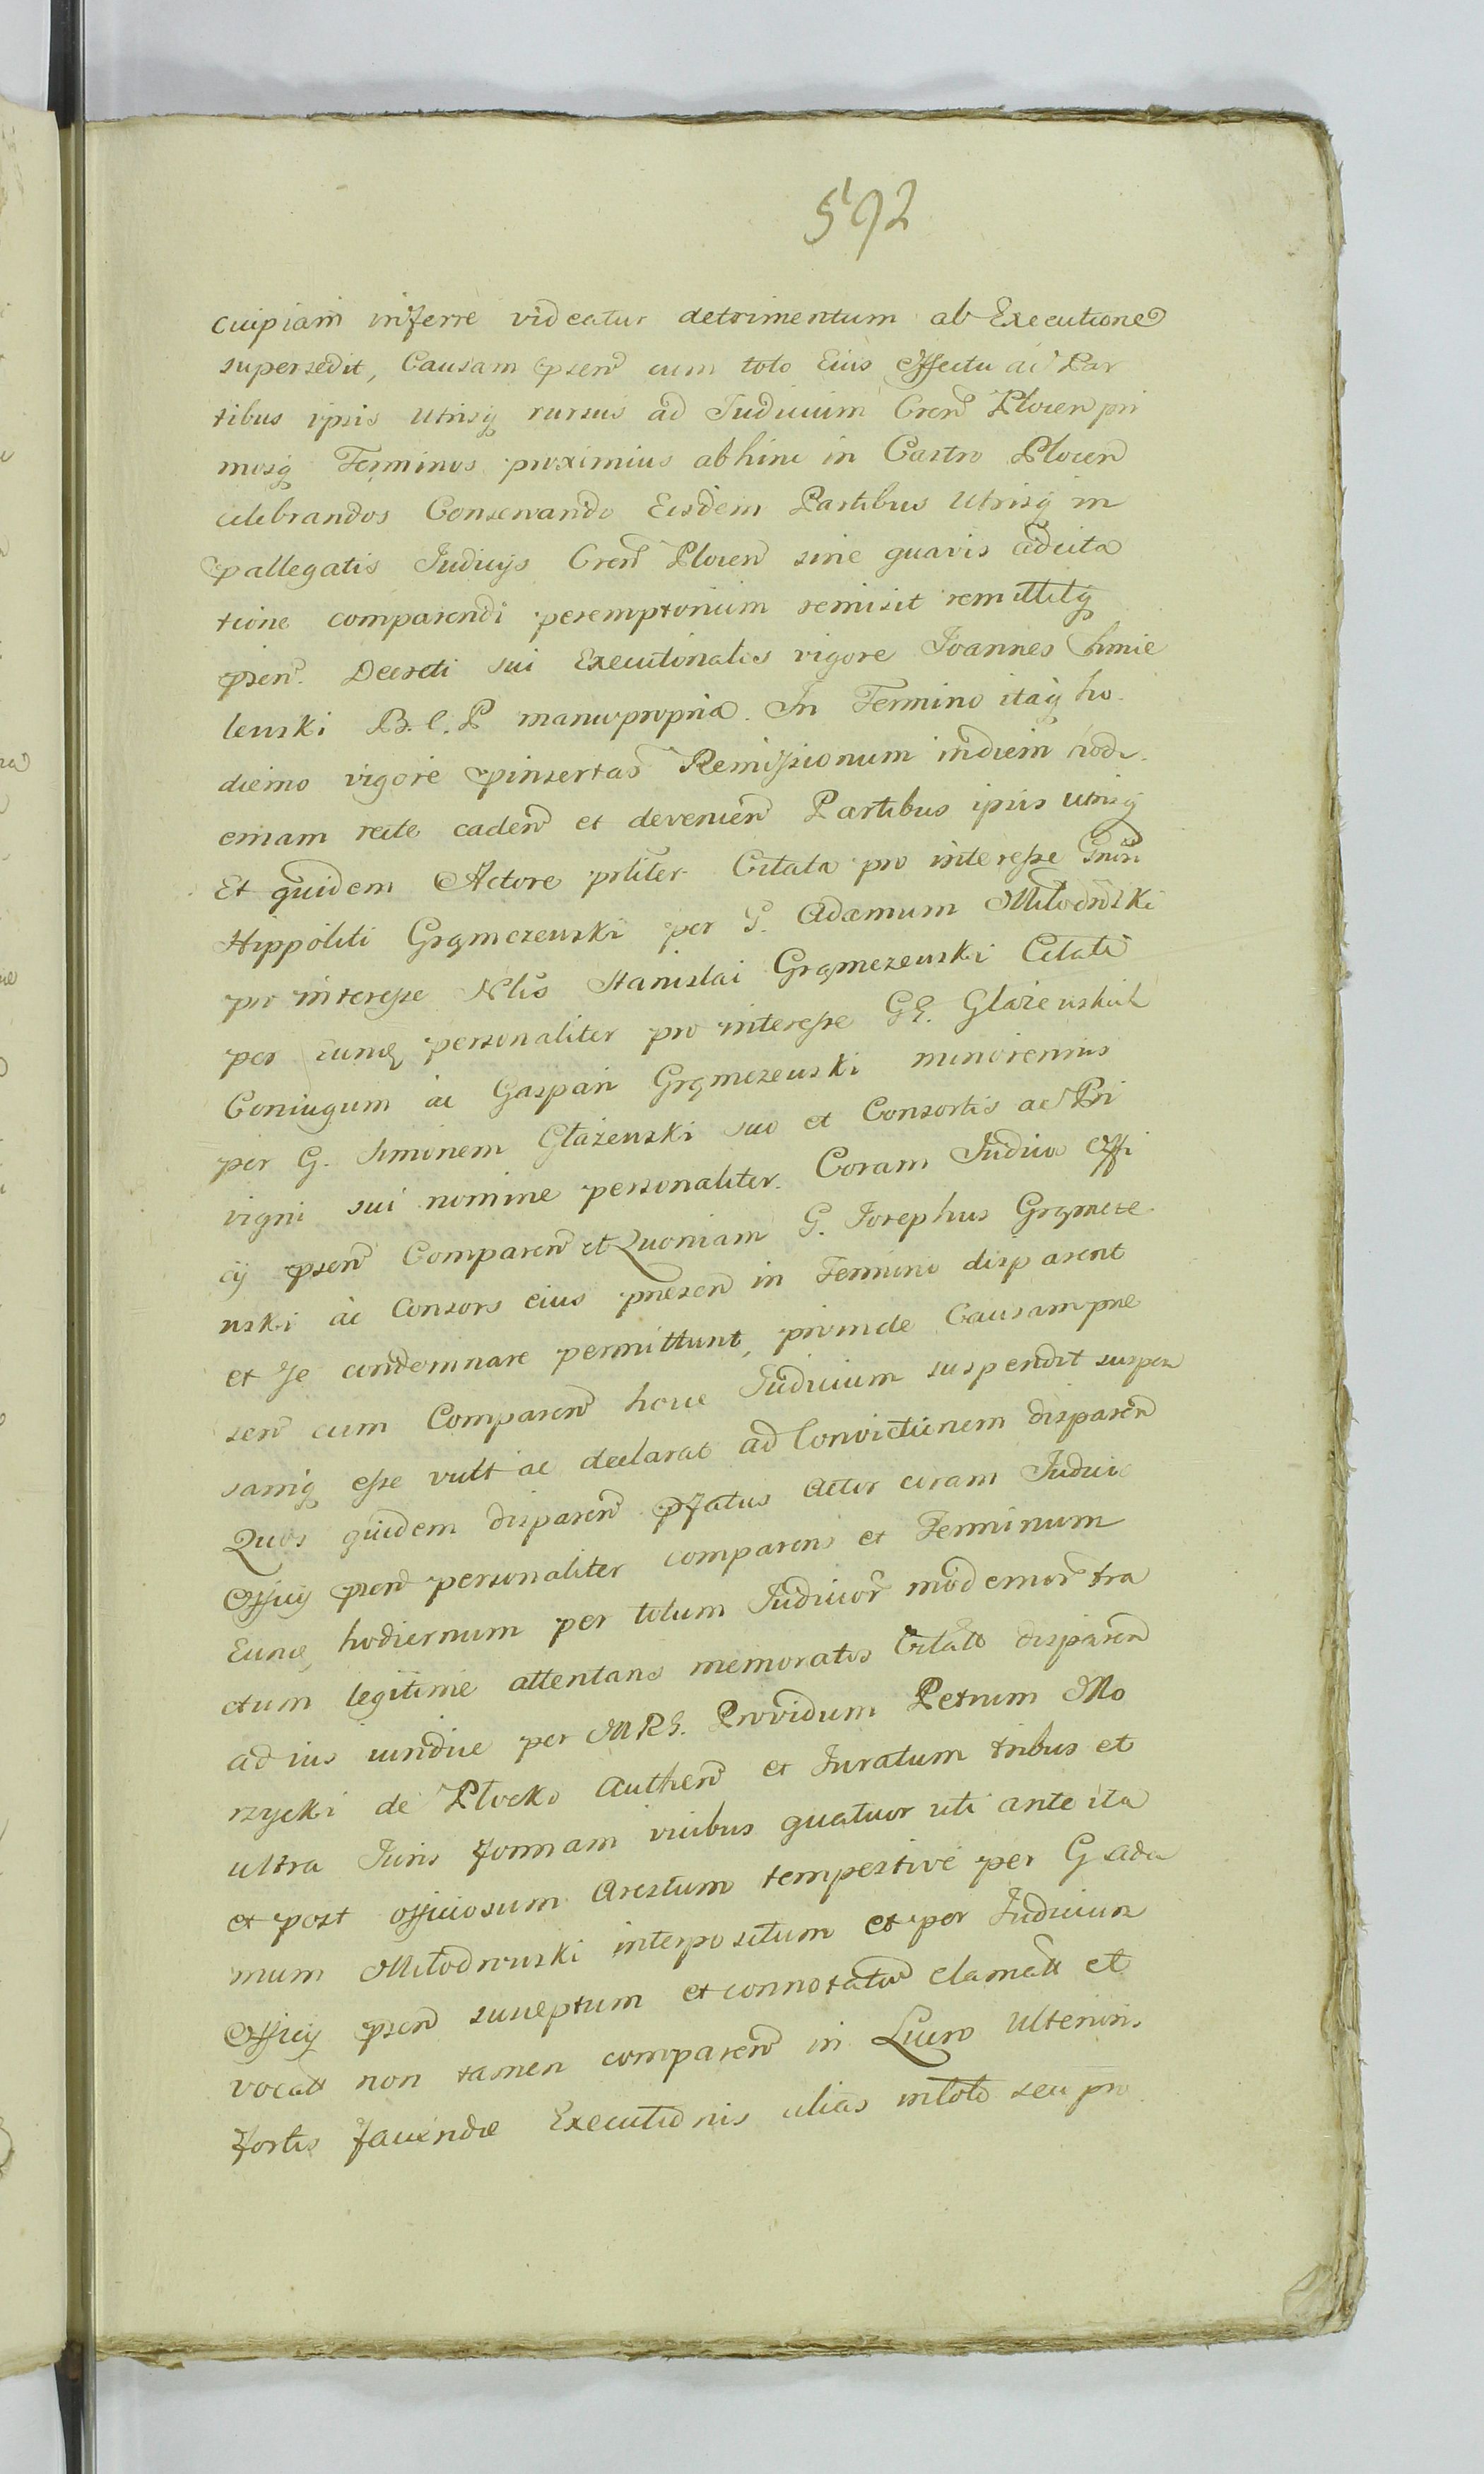 592
cuipiam inferre videatur detrimentum ab Executione
supersedit, Causam psen cum toto Eius Effectu ac Par
tibus ipsis utrisq rursus ad Judicium Cren Plocen pri
mosq Terminos proximius abhinc in Castro Plocen
celebrandos Conservando Eisdem Partibus Utrisq in
pallegatis Judicijs Cren Plocen sine quavis adcita
tione comparendi peremptorium remisit remittitq
psen. Decreti sui Executionalis vigore Joannes Chmie
lewski B. C. P manu propria. In Termino itaq ho
dierno vigore pinsertas Remissionum in diem hodi
ernam recte caden et devenien Partibus ipsis utrisq
Et quidem Actore prliter Citata pro interesse Gnri
Hippoliti Grąmczewski per G. Adamum Miłodrowski
pr interesse Nlis Stanislai Grąmczewski Citati
per Eund personaliter pro interesse GG. Głażewskich
Coniugum ac Gaspari Grąmczewski minorennis
per G. Simonem Głażewski suo et Consortis ac Pri
vigni sui nomine personaliter. Coram Judicio Offi
cij psen Comparen et Quoniam G. Josephus Grąmcze
wski ac Consors eius presen in Termino disparent
et se condemnare permittunt, proinde Causam pre
sen cum Comparen hocce Judicium suspendit suspen
samq esse vult ac declarat ad Convictionem disparen
Quos quidem disparen pfatus Actor coram Judicio
Officij psen personaliter comparens et Terminum
Eund hodiernum per totum Judicior modernor tra
ctum legitime attentans memoratos Citato disparen
ad ius iuridice per MRG. Providum Petrum Mo
rzycki de Płocko Authen et Juratum tribus et
ultra Juris formam vicibus quatuor uti ante ita
et post officiosum Arestum tempestive per G Ada
mum Miłodrowski interpositum et per Judicium
Officij psen susceptum et connotatum clamatt et
vocatt non tamen comparen in Lucro Ulterioris
fortis favendæ Executionis alias in toto seu pro